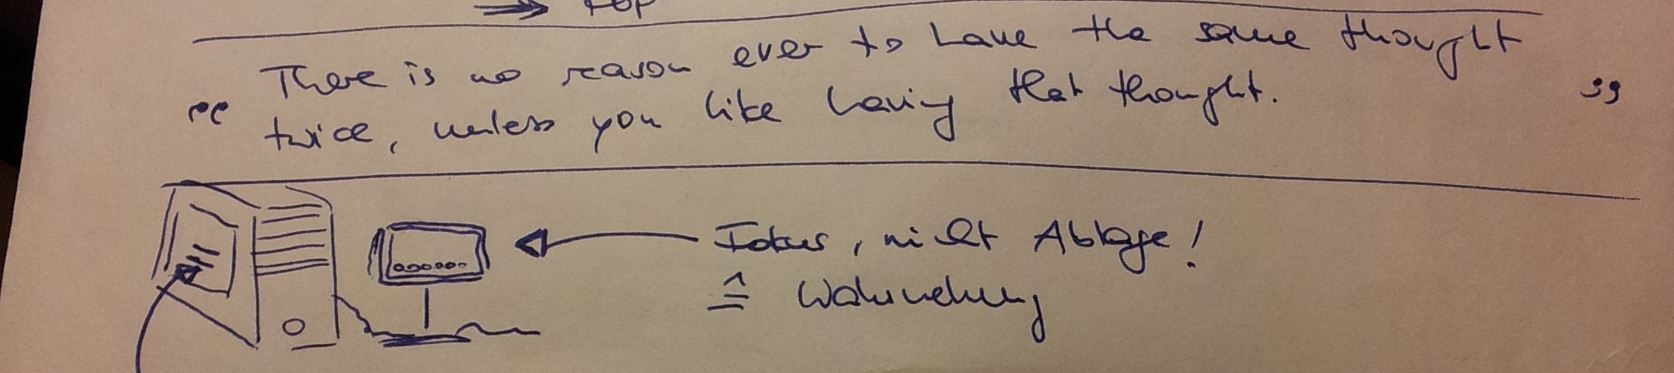 There is no reason ever to have the same thought
"twice, unless you like having that thought."
Fokus, nicht Ablage!
≙ Wahrnehmung